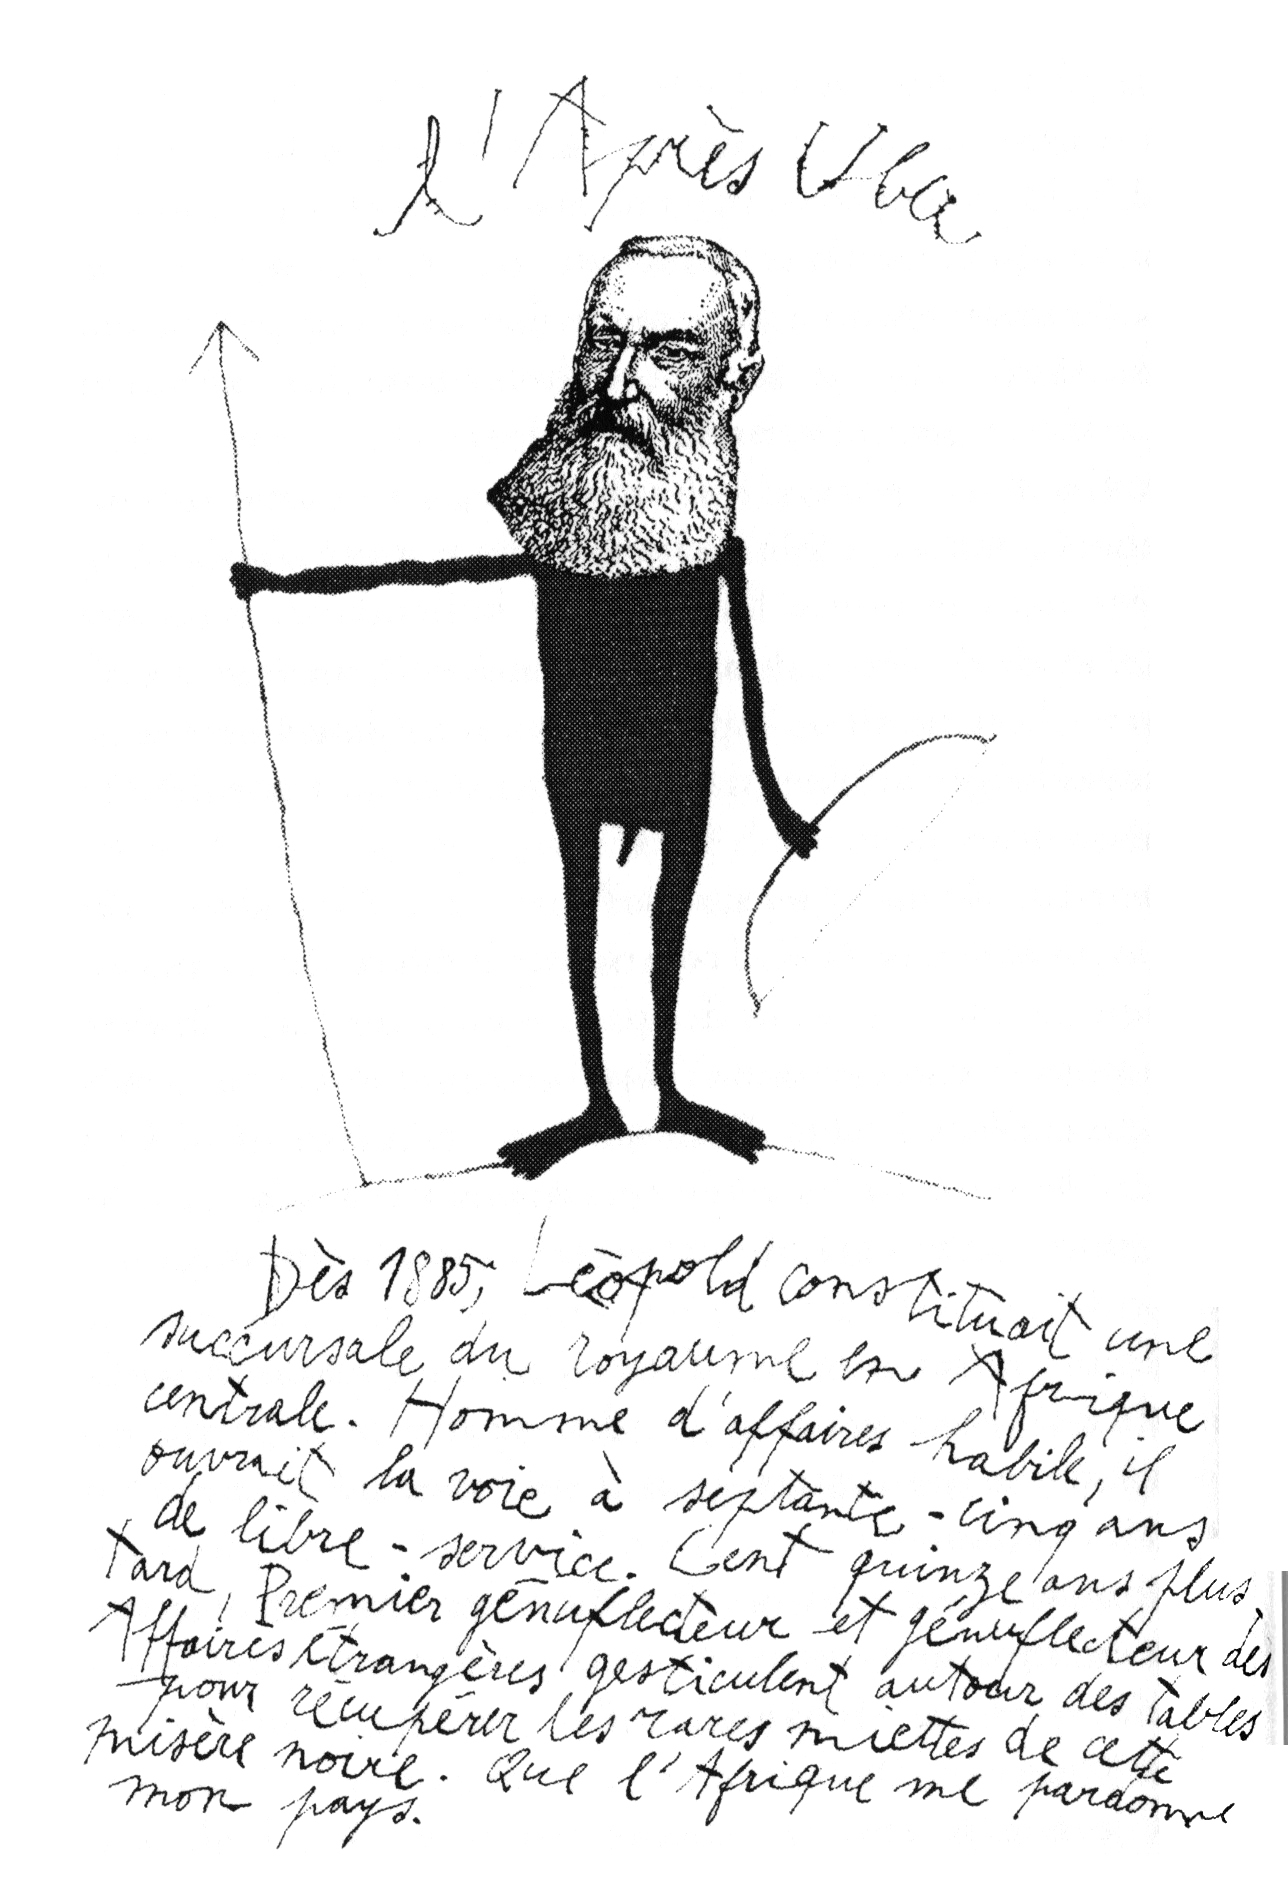 l'Après Ubu
Dès 1885, Léopold constituait une
succursale du royaume en Afrique
centrale. Homme d'affaires habile, il
ouvrait la voie à septante-cinq ans
de libre-service. Cent quinze ans plus
tard, Premier génuflecteur et génuflecteur des
Affaires étrangères gesticulent autour des tables
pour récupérer les rares miettes de cette
misère noire. Que l'Afrique me pardonne
mon pays.